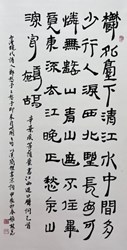 鬱孤臺下清江水中間多
少行人淚西北望長安可
憐無數山青山遮不住畢
竟東流去江晚正愁余山
深聞鷓鴣
辛棄疾菩薩蠻書江西造口壁